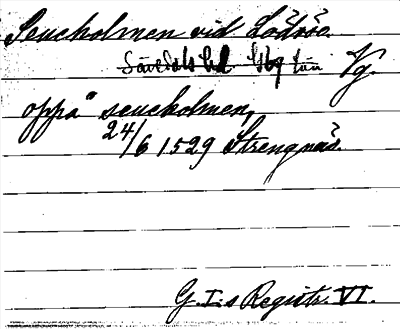 Seucholmen vid Lödöse
Sävedals hd Gbg län Vg.
oppå seucholmen,
24/6 1529 Strengnäs.
G. I:s Registr. VI.